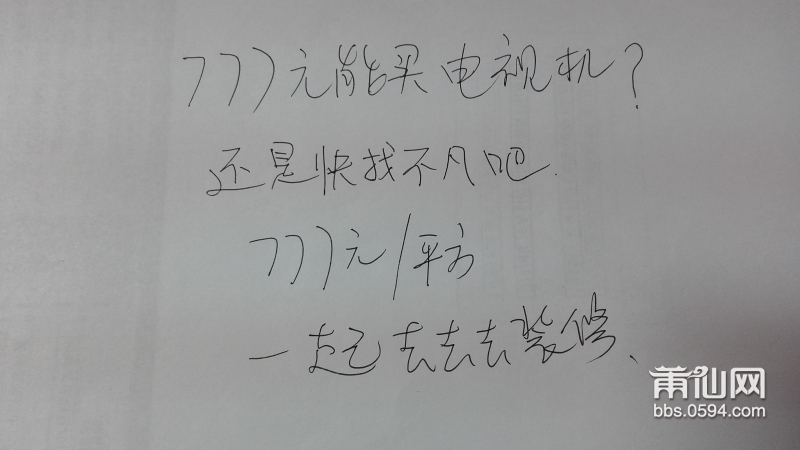 777元能买电视机?
还是快找不凡吧.
777元/平方
一起去去去装修、
莆仙网
bbs.0594.com